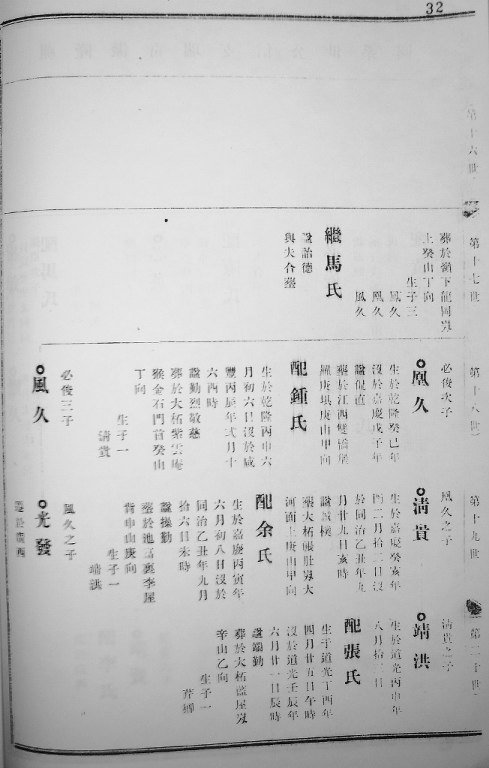 32
第十六世
第十七世
葬於嶺下龍岡嵙
上癸山丁向
生子三
鳳久
鳳久
風久
繼馬氏
諡詒德
與夫合塋
第十八世
必俊次子
鳳久
生於乾隆癸巳年
沒於嘉慶戊子年
諡侃直
塋於江西雙橋堡
庚山甲向
配鍾氏
生於乾隆丙申六
月初六日沒於咸
豐丙辰年弍月十
六酉時
諡勤烈敬慈
葬於大柘紫雲庵
猴金石門首癸山
丁向
生子一
清貴
必俊三子
風久
第十九世
風久之子
清貴
生於嘉慶癸亥年
二月拾二日沒
於同治乙丑年九
月廿九日亥時
諡誠樸
塋大柘
河面上庚山甲向
配余氏
生於嘉慶丙寅年
六月初八日沒於
同治乙丑年九月
拾六日未時
諡操勤
塟於池嘉裏李屋
背申山庚向
生子一
靖洪
風久之子
光發
第二十世
清貴之子
靖洪
生於道光丙申年
八月拾二日
配張氏
生于道光丁酉年
四月廿五日午時
沒於道光壬辰年
六月廿一日辰時
諡端勤
葬於大柘藍屋
辛山乙向
生子一